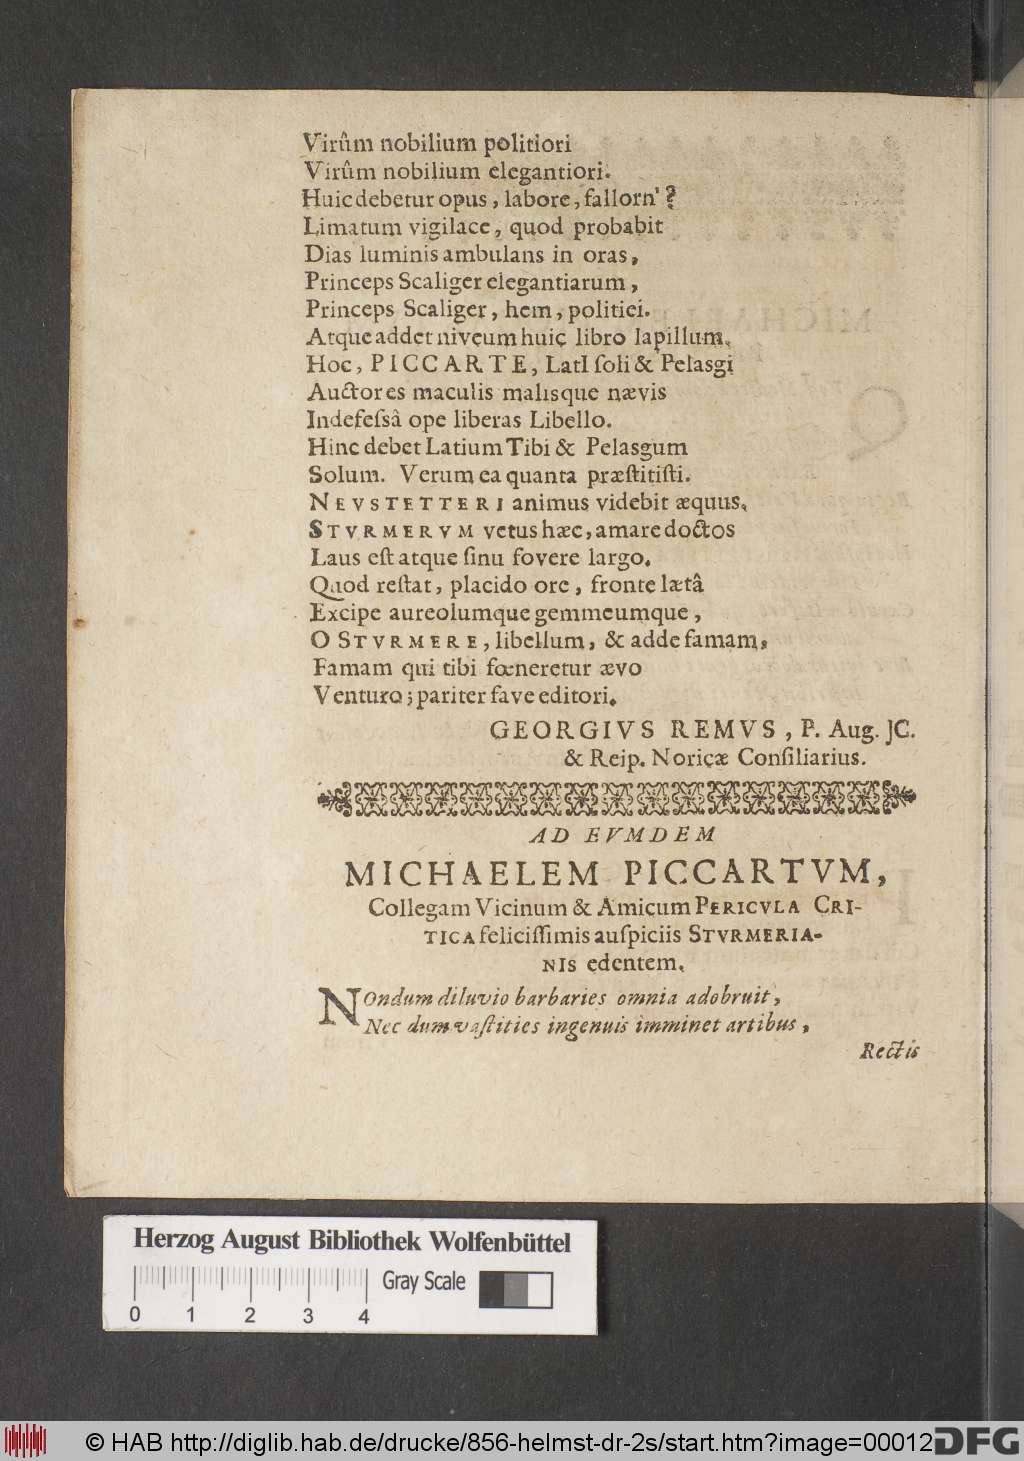 Virûm nobilium politiori
Virûm nobilium elegantiori.
Huic debetur opus, labore, fallorn'?
Limatum vigilace, quod probabit
Dias luminis ambulans in oras,
Princeps Scaliger elegantiarum,
Princeps Scaliger, hem, politiei.
Atque addet niveum huic libro lapillum.
Hoc, PICCARTE, LatI ſoli & Pelasgi
Auctores maculis malisque nævis
Indefeſsâ ope liberas Libello.
Hinc debet Latium Tibi & Pelasgum
Solum. Verum ea quanta præſtitiſti.
NEVSTETTERI animus videbit æquus,
STVRMERVM vetus hæc, amare doctos
Laus eſt atque ſinu fovere largo.
Quod reſtat, placido ore, fronte lætâ
Excipe aureolumque gemmeumque,
O STVRMERE, libellum, & adde famam,
Famam qui tibi fœneretur ævo
Venturo; pariter fave editori.
GEORGIVS REMVS, P. Aug. JC.
& Reip. Noricæ Conſiliarius.
AD EVMDEM
MICHAELEM PICCARTVM,
Collegam Vicinum & Amicum PERICVLA CRI-
TICA feliciſſimis auſpiciis STVRMERIA-
NIS edentem.
NOndum diluvio barbaries omnia adobruit,
Nec dum vaſtities ingenuis imminet artibus,
Rectis
Herzog August Bibliothek Wolfenbüttel
Gray Scale
0 1 2 3 4
© HAB http://diglib.hab.de/drucke/856-helmst-dr-2s/start.htm?image=00012
DFG